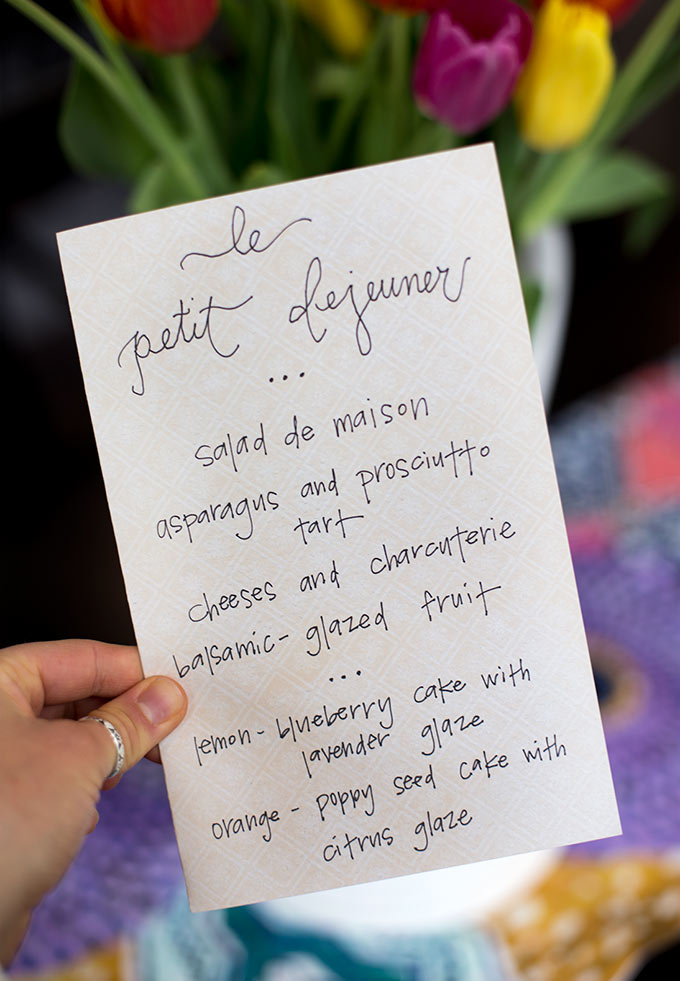 le
petit dejeuner
...
salad de maison
asparagus and prosciutto
tart
cheeses and charcuterie
balsamic-glazed fruit
...
lemon-blueberry cake with
lavender glaze
orange-poppy seed cake with
citrus glaze